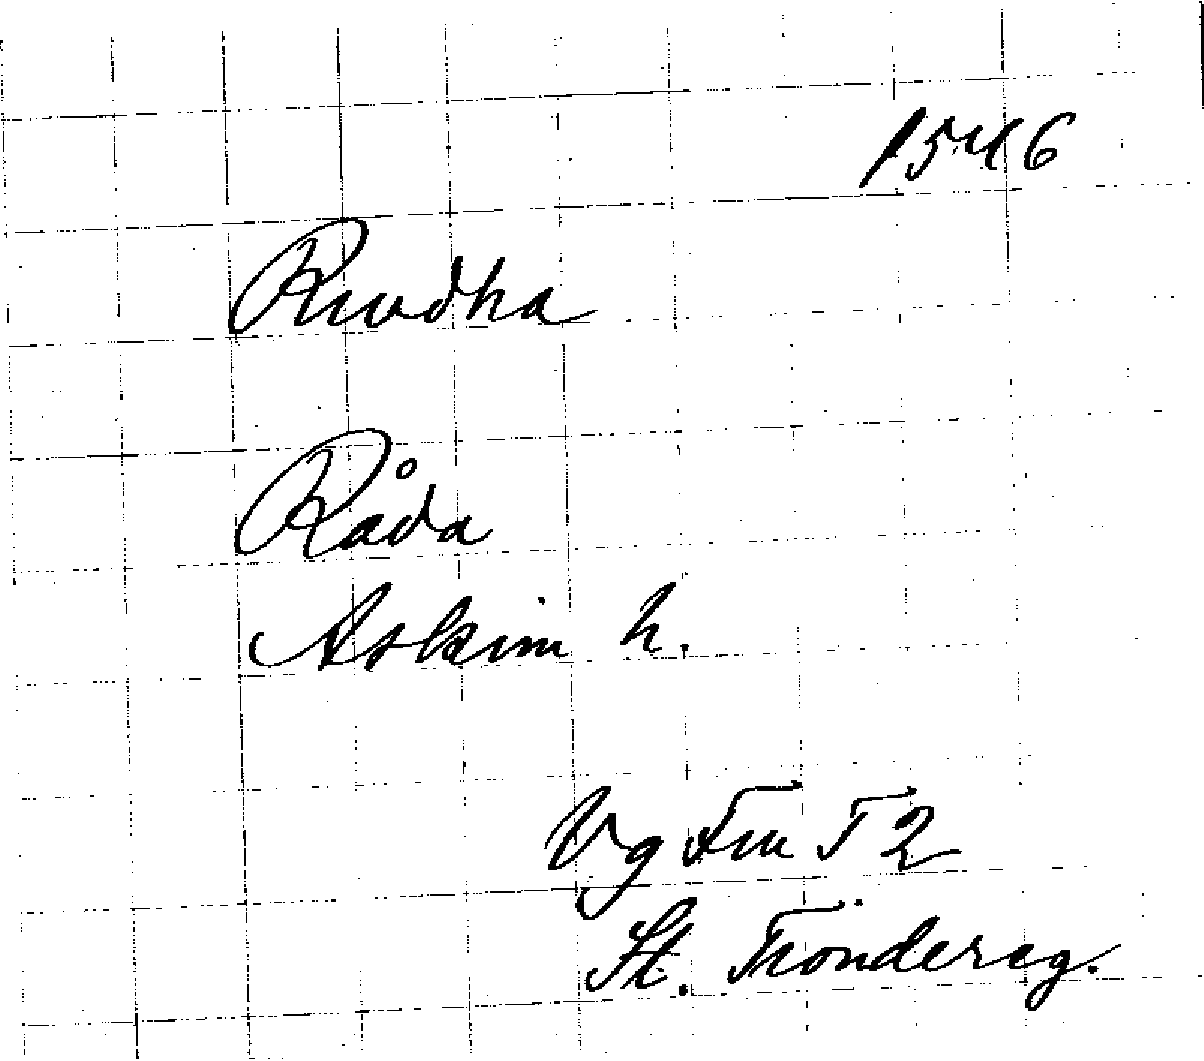 1546
Rwdha
Råda
Askim h.
Vg Fru T 2
St. Tiondereg.